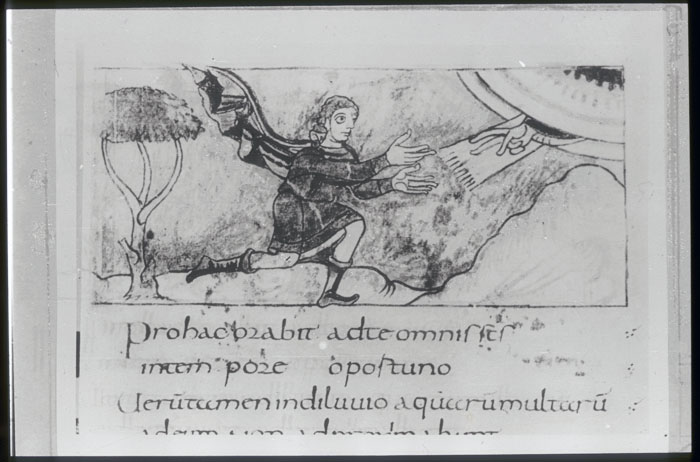 Prohac orabit adte omnis sc̄s
intempore oportuno
Uerūtamen indiluuio aquarū multarū